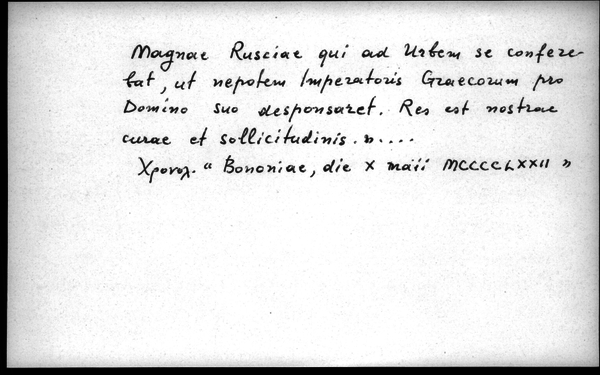 Magnae Rusciae qui ad Urbem se confere-
bat, ut nepotem Imperatoris Graecorum pro
Domino suo desponsaret. Res est nostrae
curae et sollicitudinis.»....
Χρονολ. “ Bononiae, die X maii MCCCCLXXII »